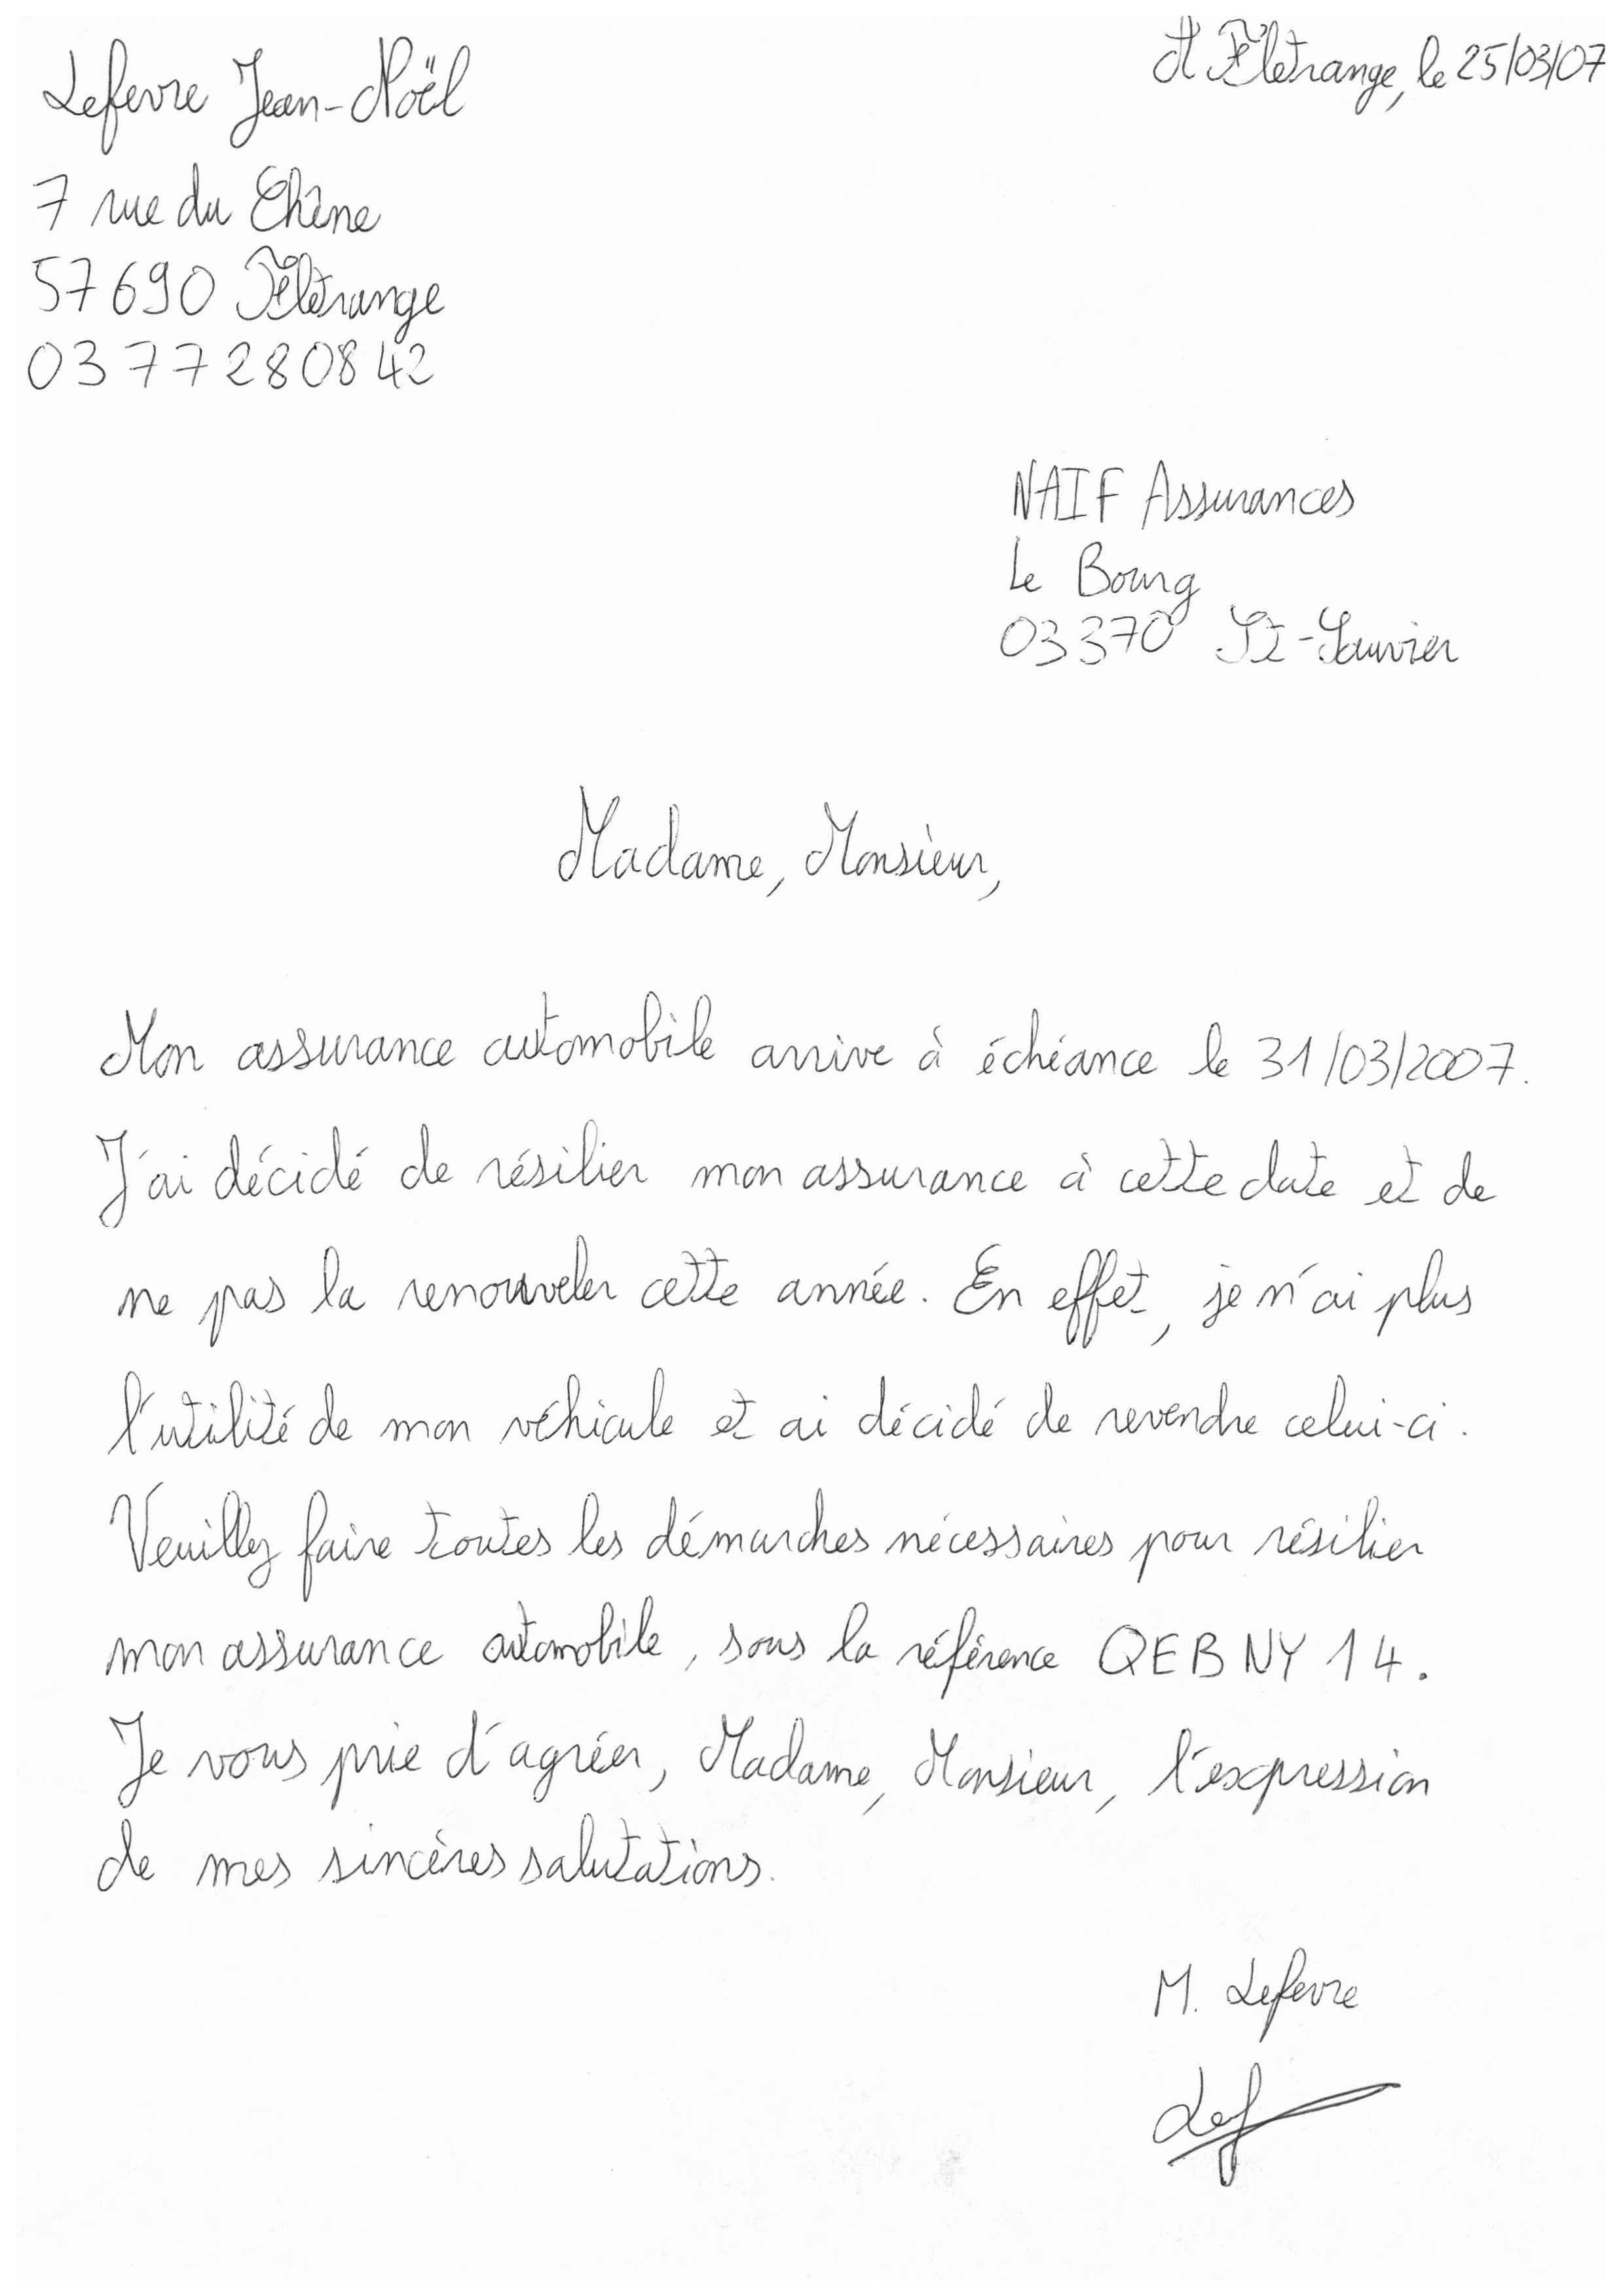 Lefevre Jean-Noël
A Flétrange, le 25/03/07
7 rue du Chêne
57690 Flétrange
0377280842
NAIF Assurances
Le Bourg
03370 St-Sauvier
Madame, Monsieur,
Mon assurance automobile arrive à échéance le 31/03/2007.
J'ai décidé de résilier mon assurance à cette date et de
ne pas la renouveler cette année. En effet, je n'ai plus
l'utilité de mon véhicule et ai décidé de revendre celui-ci.
Veuillez faire toutes les démarches nécessaires pour résilier
mon assurance automobile, sous la référence QEBNY14.
Je vous prie d'agréer, Madame, Monsieur, l'expression
de mes sincères salutations.
M. Lefevre
Lef